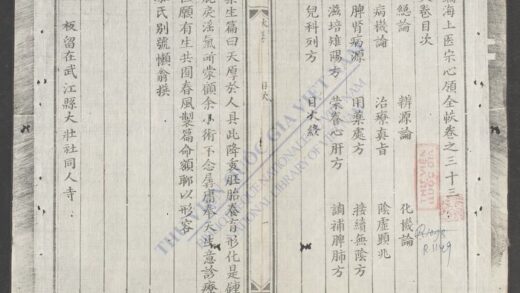 海上医宗心領全帙卷之三十三
卷目次
緫論 辨源論 化機論
病機論 治療真旨 陰虛顯兆
脾腎病源 用藥處方 接續無陰方
滋培雄陽方 榮養心肝方 調補脾肺方
兒科列方 目次終
目次
生篇曰天厚於人具此降衷胚胎養育形化是鍾
戾淫氣所蒙顧余小術不忍孱膚奉天生意診療
但願有生共囿春風製篇命題聊以形容
氏別號懶翁撰
板留在武江縣大壯社同人寺
THƯ VIỆN QUỐC GIA VIỆT NAM
NATIONAL LIBRARY OF VIETNAM
R.1149